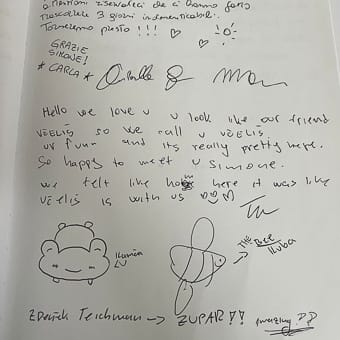 ci hanno fatto
trascorrere 3 giorni indimenticabili.
Torneremo presto !!!
GRAZIE
SIMONE!
* CARLA *
Hello we love u u look like our friend
so we call u
ur funn and its really pretty here.
So happy to meet u Simone.
we felt like home here it was like
is with us
THE Bee
Kuba
Zdeněk Teichman → ZUPAR??
amazing ??